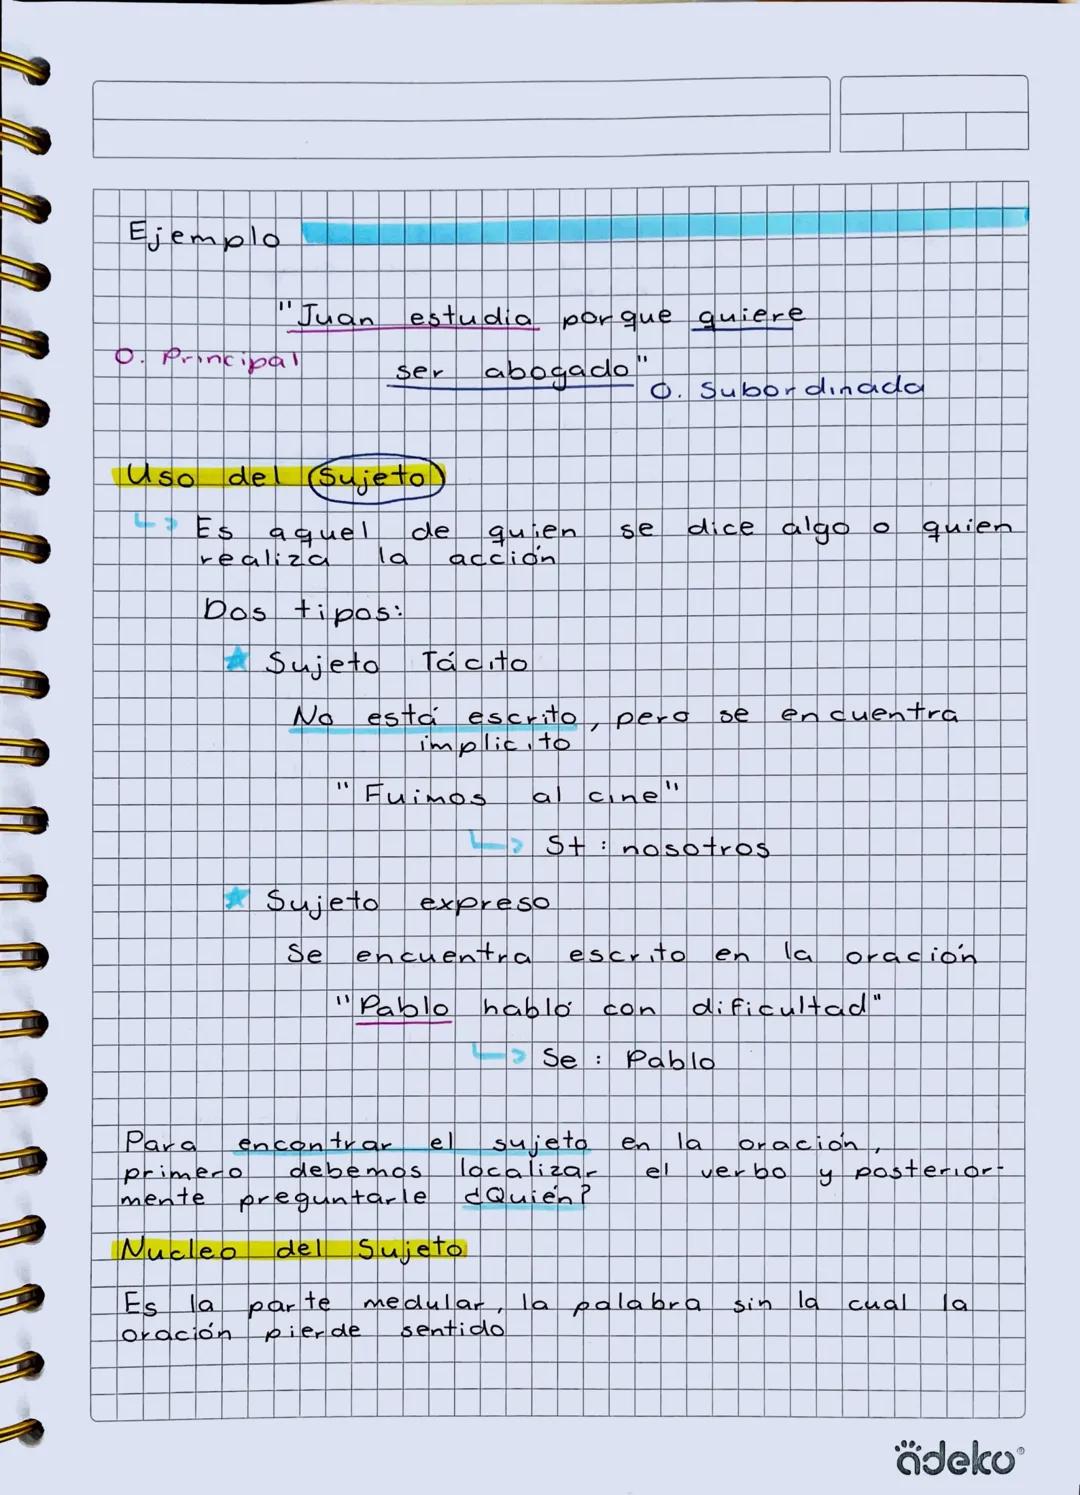 Ejemplo
"Juan estudia porque quiere
O. Principal
ser abogado"
O. Subordinada
Uso del Sujeto
↳ Es aquel de quien se dice algo o quien
realiza la acción
Dos tipos:
★ Sujeto Tácito
No está escrito, pero se encuentra
implicito
"Fuimos al cine"
↳ St : nosotros
★ Sujeto expreso
Se encuentra escrito en la oración
"Pablo habló con dificultad"
↳ Se : Pablo
Para encontrar el sujeto en la oración,
primero debemos localizar el verbo y posterior-
mente preguntarle ¿Quién?
Nucleo del Sujeto
Es la parte medular, la palabra sin la cual la
oración pierde sentido
ädeko®